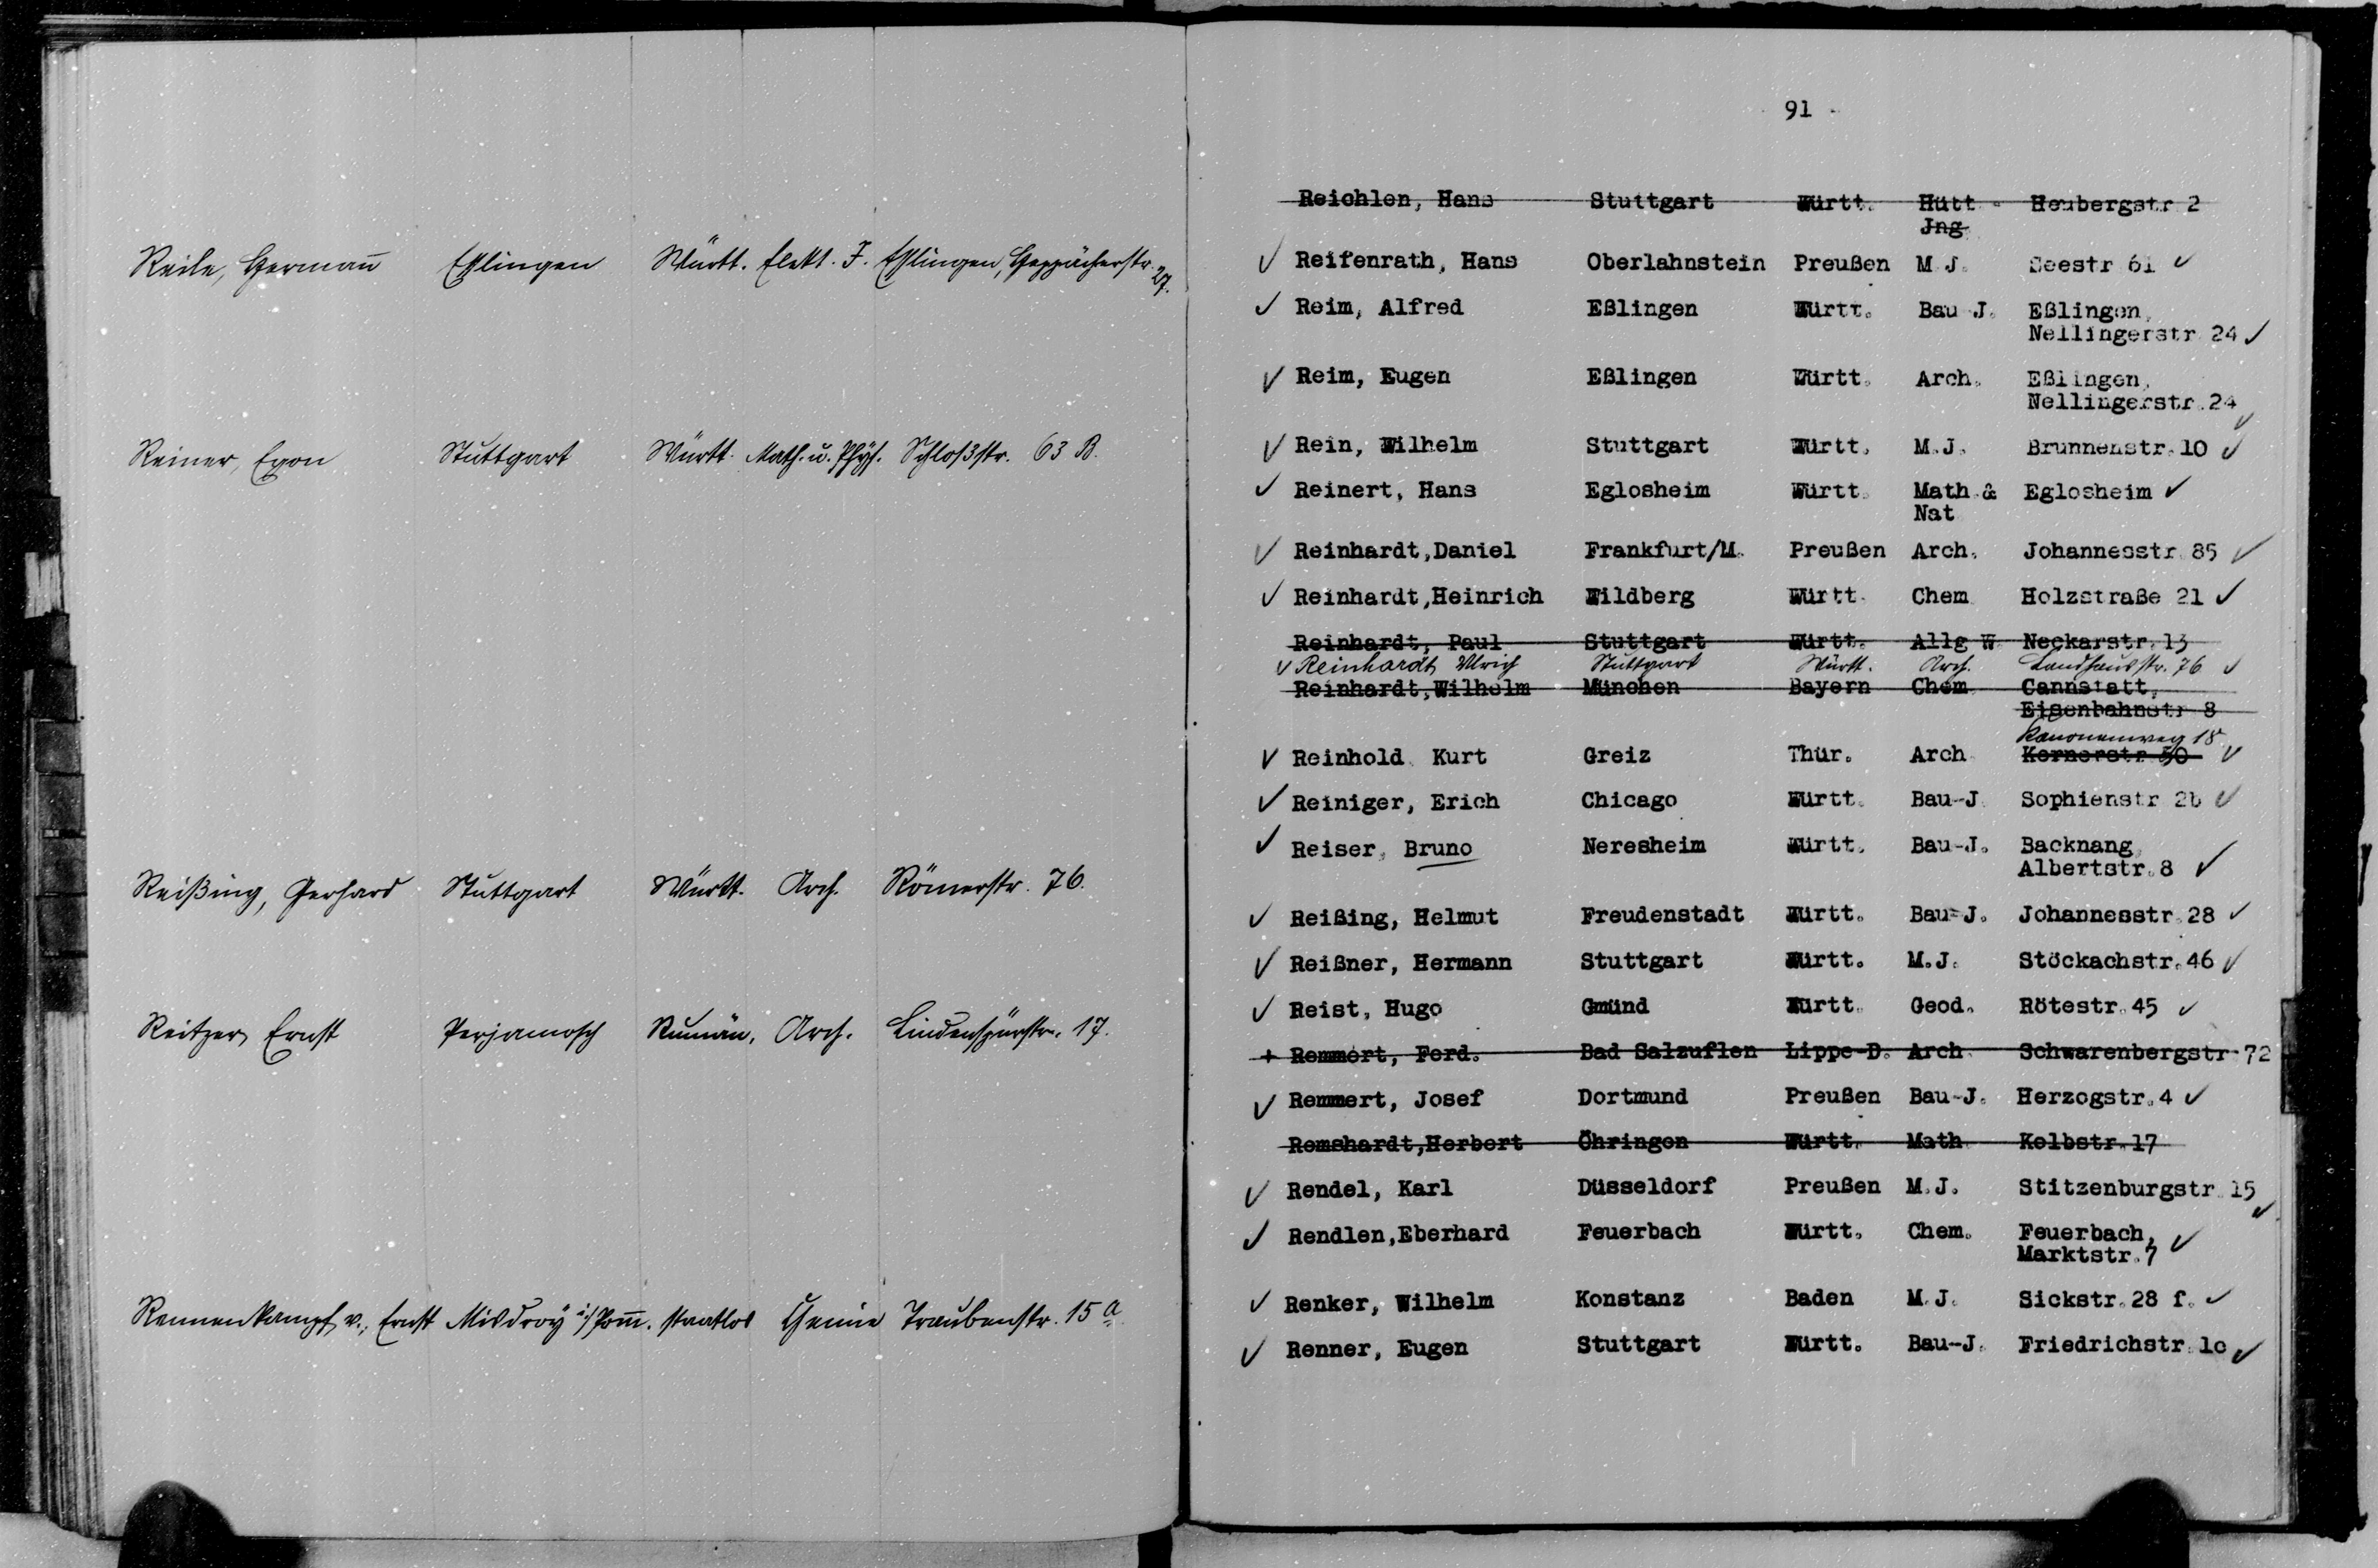 Reile, Hermann Eßlingen Württ. Elekt. I. Eßlingen, Heppächerstr. 27.
Reiner, Egon Stuttgart Württ. Math. u. Phys. Schloßstr. 63 B.
Reißing, Gerhard Stuttgart Württ. Arch. Römerstr. 76.
Reitzer, Ernst Perjamosch Rumän. Arch. Lindenspürstr. 17.
Rennenkampf v., Ernst Misdroy i/Pom̄. staatlos Chemie Traubenstr. 15 a
91 -
Reichlen, Hans Stuttgart Württ. Hütt - Heubergstr 2
Jng.
✓ Reifenrath, Hans Oberlahnstein Preußen M J. Seestr 61 ✓
✓ Reim, Alfred Eßlingen Württ. Bau J. Eßlingen,
Nellingerstr 24 ✓
✓ Reim, Eugen Eßlingen Württ. Arch. Eßlingen,
Nellingerstr.24 ✓
✓ Rein, Wilhelm Stuttgart Württ. M.J. Brunnenstr.10 ✓
✓ Reinert, Hans Eglosheim Württ. Math.& Eglosheim ✓
Nat
✓ Reinhardt,Daniel Frankfurt/M. Preußen Arch. Johannesstr.85 ✓
✓ Reinhardt,Heinrich Wildberg Württ. Chem Holzstraße 21 ✓
Reinhardt, Paul Stuttgart Württ. Allg W Neckarstr.13
✓ Reinhardt, Ulrich Stuttgart Württ. Arch. Landhausstr. 76 ✓
Reinhardt,Wilhelm München Bayern Chem Cannstatt,
Eisenbahnstr 8
Kanonenweg 18
✓ Reinhold Kurt Greiz Thür. Arch Kernerstr 50 ✓
✓ Reiniger, Erich Chicago Württ. Bau-J Sophienstr 2b ✓
✓ Reiser, Bruno Neresheim Württ. Bau-J. Backnang,
Albertstr.8 ✓
✓ Reißing, Helmut Freudenstadt Württ. Bau=J. Johannesstr.28 ✓
✓ Reißner, Hermann Stuttgart Württ. M.J. Stöckachstr.46 ✓
✓ Reist, Hugo Gmünd Württ. Geod. Rötestr.45 ✓
+ Remmert, Ferd. Bad Salzuflen Lippe-D. Arch Schwarenbergstr 72
✓ Remmert, Josef Dortmund Preußen Bau-J. Herzogstr.4 ✓
Remshardt,Herbert Öhringen Württ. Math Kelbstr.17
✓ Rendel, Karl Düsseldorf Preußen M.J. Stitzenburgstr 15 ✓
✓ Rendlen,Eberhard Feuerbach Württ. Chem. Feuerbach,
Marktstr.7 ✓
✓ Renker, Wilhelm Konstanz Baden M.J. Sickstr.28 f. ✓
✓ Renner, Eugen Stuttgart Württ. Bau-J. Friedrichstr.1c ✓